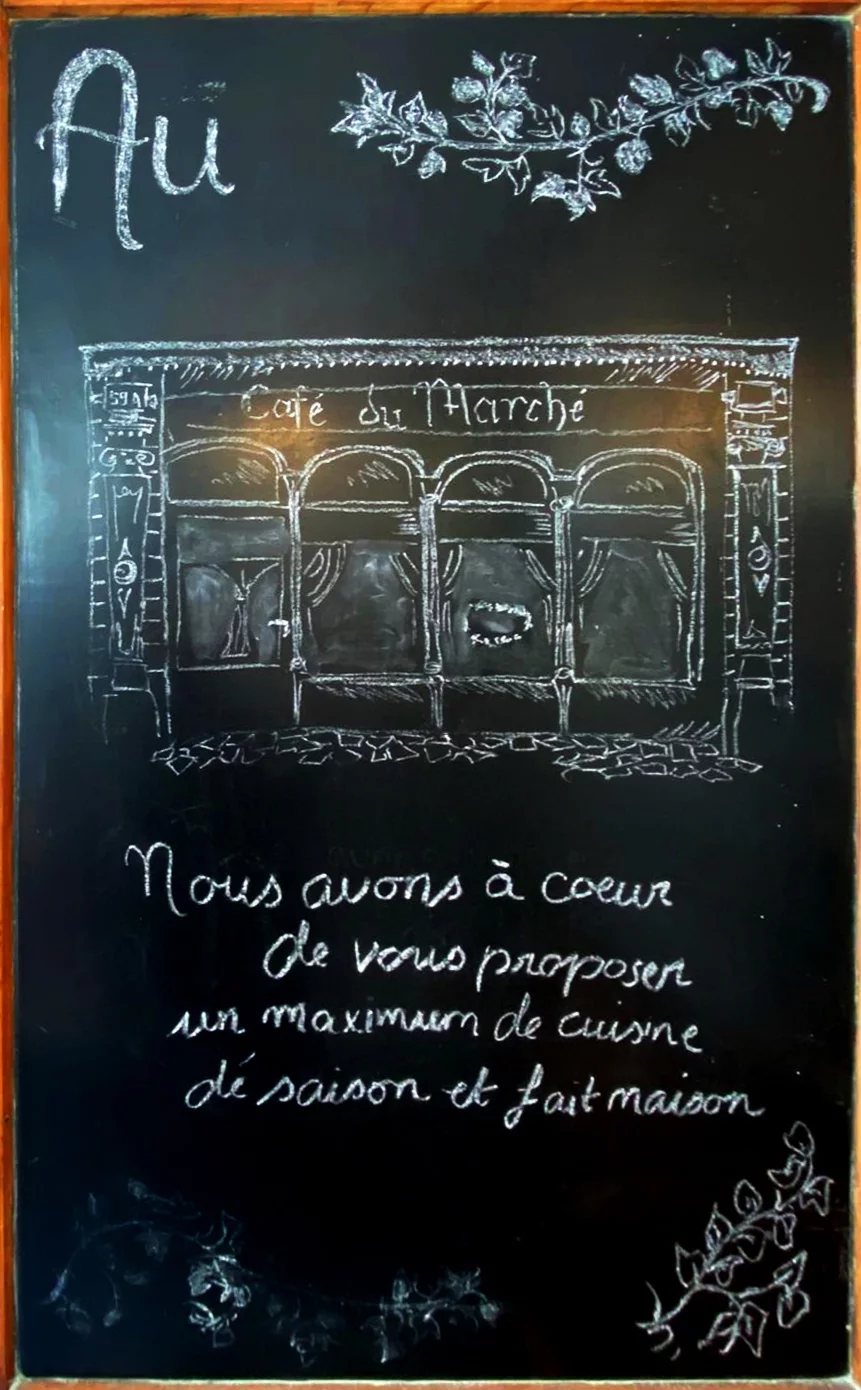 Au
Café du Marché
Nous avons à coeur
de vous proposer
un maximum de cuisine
dé saison et fait maison